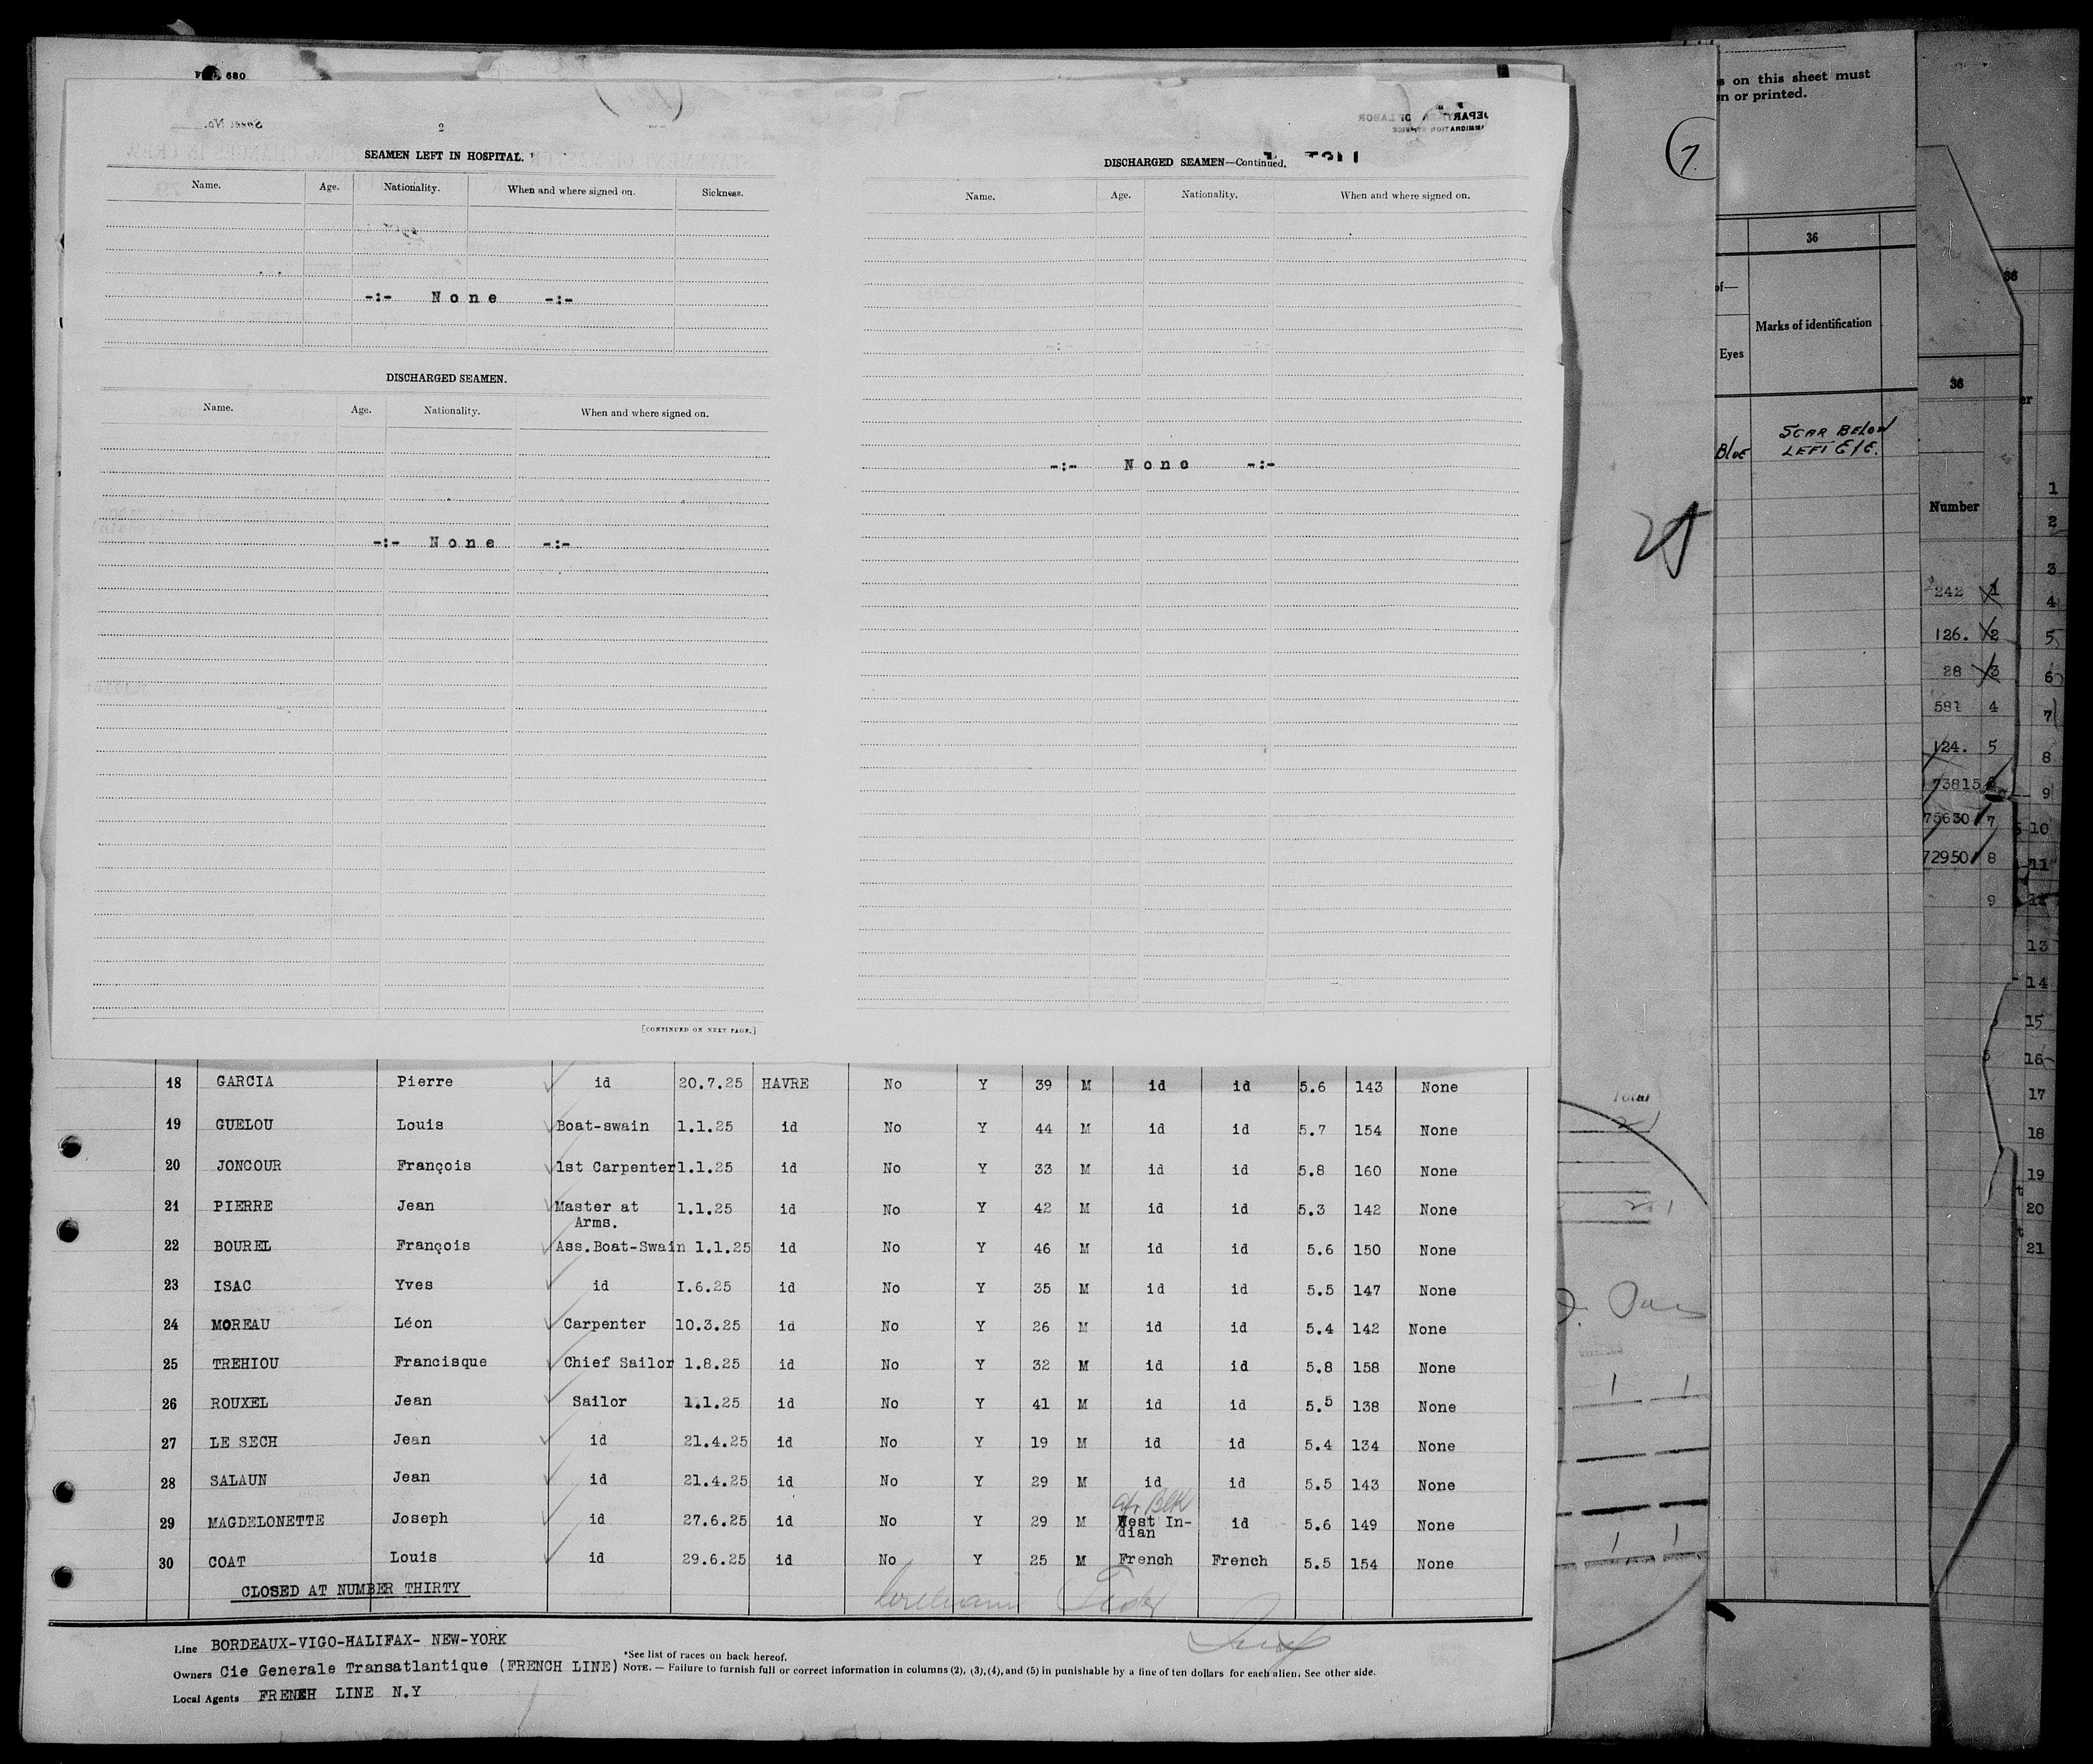 680
2
SEAMEN LEFT IN HOSPITAL.
Name. Age. Nationality. When and where signed on. Sickness.
-:- None -:-
DISCHARGED SEAMEN.
Name. Age. Nationality. When and where signed on.
-:- None -:-
[CONTINUED ON NEXT PAGE.]
DISCHARGED SEAMEN—Continued.
Name. Age. Nationality. When and where signed on.
-:- None -:-
18 GARCIA Pierre id 20.7.25 HAVRE No Y 39 M id id 5.6 143 None
19 GUELOU Louis Boat-swain 1.1.25 id No Y 44 M id id 5.7 154 None
20 JONCOUR François 1st Carpenter 1.1.25 id No Y 33 M id id 5.8 160 None
21 PIERRE Jean Master at 1.1.25 id No Y 42 M id id 5.3 142 None
Arms.
22 BOUREL François Ass.Boat-Swain 1.1.25 id No Y 46 M id id 5.6 150 None
23 ISAC Yves id I.6.25 id No Y 35 M id id 5.5 147 None
24 MOREAU Léon Carpenter 10.3.25 id No Y 26 M id id 5.4 142 None
25 TREHIOU Francisque Chief Sailor 1.8.25 id No Y 32 M id id 5.8 158 None
26 ROUXEL Jean Sailor 1.1.25 id No Y 41 M id id 5.5 138 None
27 LE SECH Jean id 21.4.25 id No Y 19 M id id 5.4 134 None
28 SALAUN Jean id 21.4.25 id No Y 29 M id id 5.5 143 None
Af. Blk
29 MAGDELONETTE Joseph id 27.6.25 id No Y 29 M West In- id 5.6 149 None
dian
30 COAT Louis id 29.6.25 id No Y 25 M French French 5.5 154 None
CLOSED AT NUMBER THIRTY
Line BORDEAUX-VIGO-HALIFAX- NEW-YORK
*See list of races on back hereof.
Owners Cie Generale Transatlantique (FRENCH LINE) NOTE. — Failure to furnish full or correct information in columns (2), (3), (4), and (5) in punishable by a fine of ten dollars for each alien. See other side.
Local Agents FRENCH LINE N.Y
7
Total
s on this sheet must
n or printed.
36
of—
Eyes
Marks of identification
Blue SCAR BELOW
LEFT EYE.
36
Number
242 1
126. 2
28 3
581 4
124. 5
73815 6
75630 7
72950 8
9
36
er
1
2
3
4
5
6
7
8
9
10
11
12
13
14
15
16
17
18
19
20
21